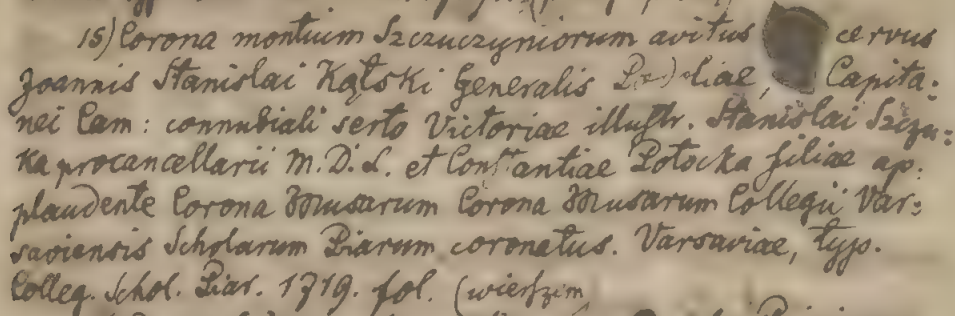 15) Corona montium Szczuczyniorum avitus cervus
Joannis Stanislai Kątski Generalis Capita:
nei Cam: connubiali serto Victoriae illustr. Stanislai Szczu:
ka procancellarii M.D.L. et Constantiae Potocka filiae ap:
plaudente Corona Musarum Corona Musarum Collegii Var:
saviensis Scholarum Piarum coronatus. Varsaviae, typ.
Colleg. Schol. Piar. 1719. fol. (wierszem